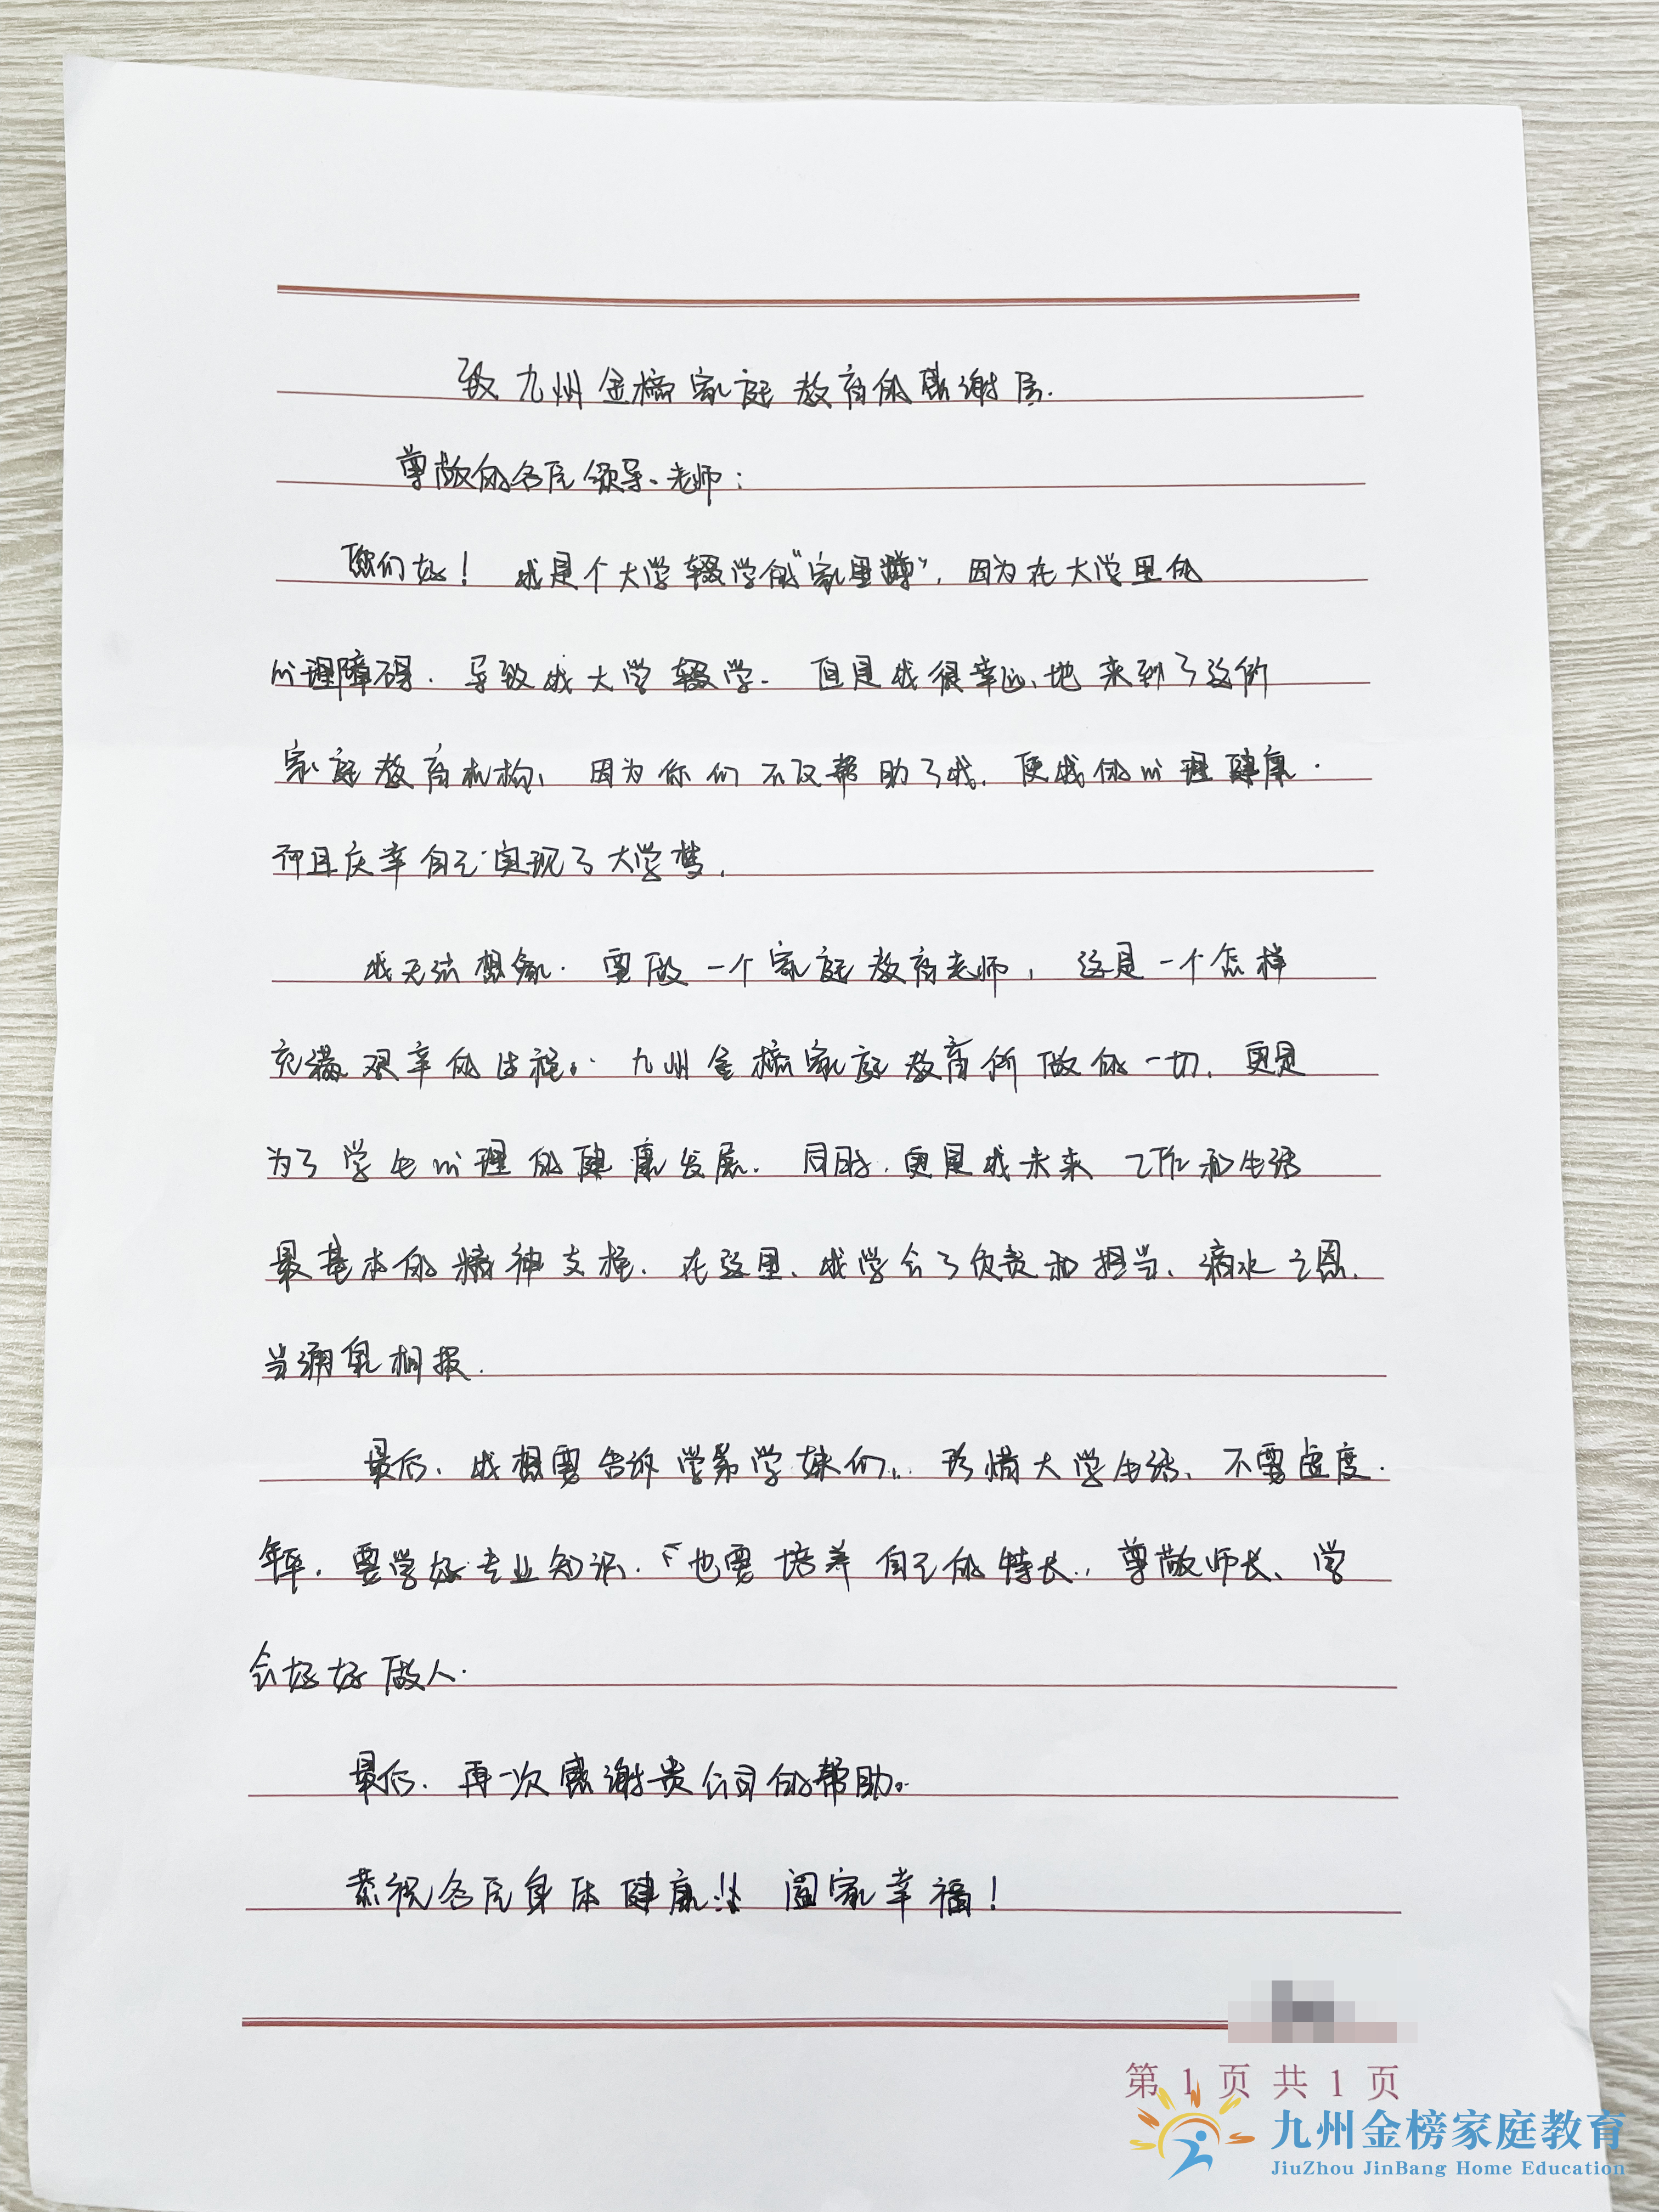 致九州金榜家庭教育的感谢信.
尊敬的各位领导、老师：
您们好！ 我是个大学辍学的“家里蹲”，因为在大学里的
心理障碍，导致我大学辍学. 但是我很幸运地来到了这所
家庭教育机构、因为你们不仅帮助了我，使我的心理健康.
而且庆幸自己实现了大学梦.
我无法想象. 要做一个家庭教育老师，这是一个怎样
充满艰辛的过程. 九州金榜家庭教育所做的一切，更是
为了学生心理的健康发展. 同时，更是我未来工作和生活
最基本的精神支撑、在这里、我学会了负责和担当、滴水之恩、
当涌泉相报.
最后、我想要告诉学弟学妹们、珍惜大学生活、不要虚度.
年华，要学好专业知识，也要培养自己的特长，尊敬师长、学
会好好做人.
最后、再一次感谢贵公司的帮助。
恭祝各位身体健康！！ 阖家幸福！
第 1 页 共 1 页
九州金榜家庭教育
JiuZhou JinBang Home Education